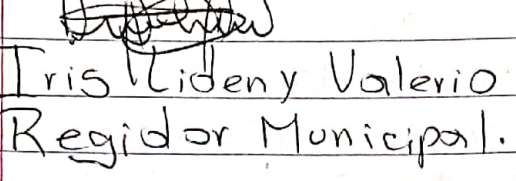 Iris Lideny Valerio
Regidor Municipal.